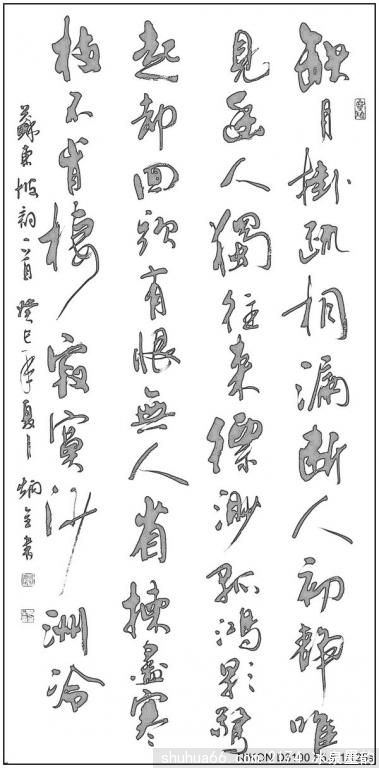 缺月掛疏桐漏斷人初靜唯
見幽人獨往來縹渺孤鴻影驚
起却回頭有恨無人省揀盡寒
枝不肯棲寂寞沙洲冷
蘇東坡詞一首 癸巳年夏 炳書
NIKON D3100